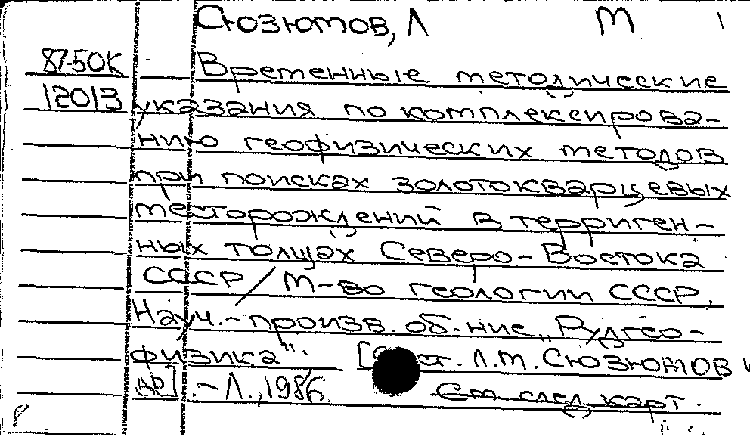 Сюзюмов, Л М
87-50К Временные методические
12013 указания по комплексирова-
нию геофизических методов
при поисках золотокварцевых
месторождений в терриген-
ных толщах Северо-Востока
СССР / М-во геологии СССР,
Науч.-произв. об-ние „Рудгео-
физика". Л.М. Сюзюмов и
др]. - Л., 1986
См след карт.